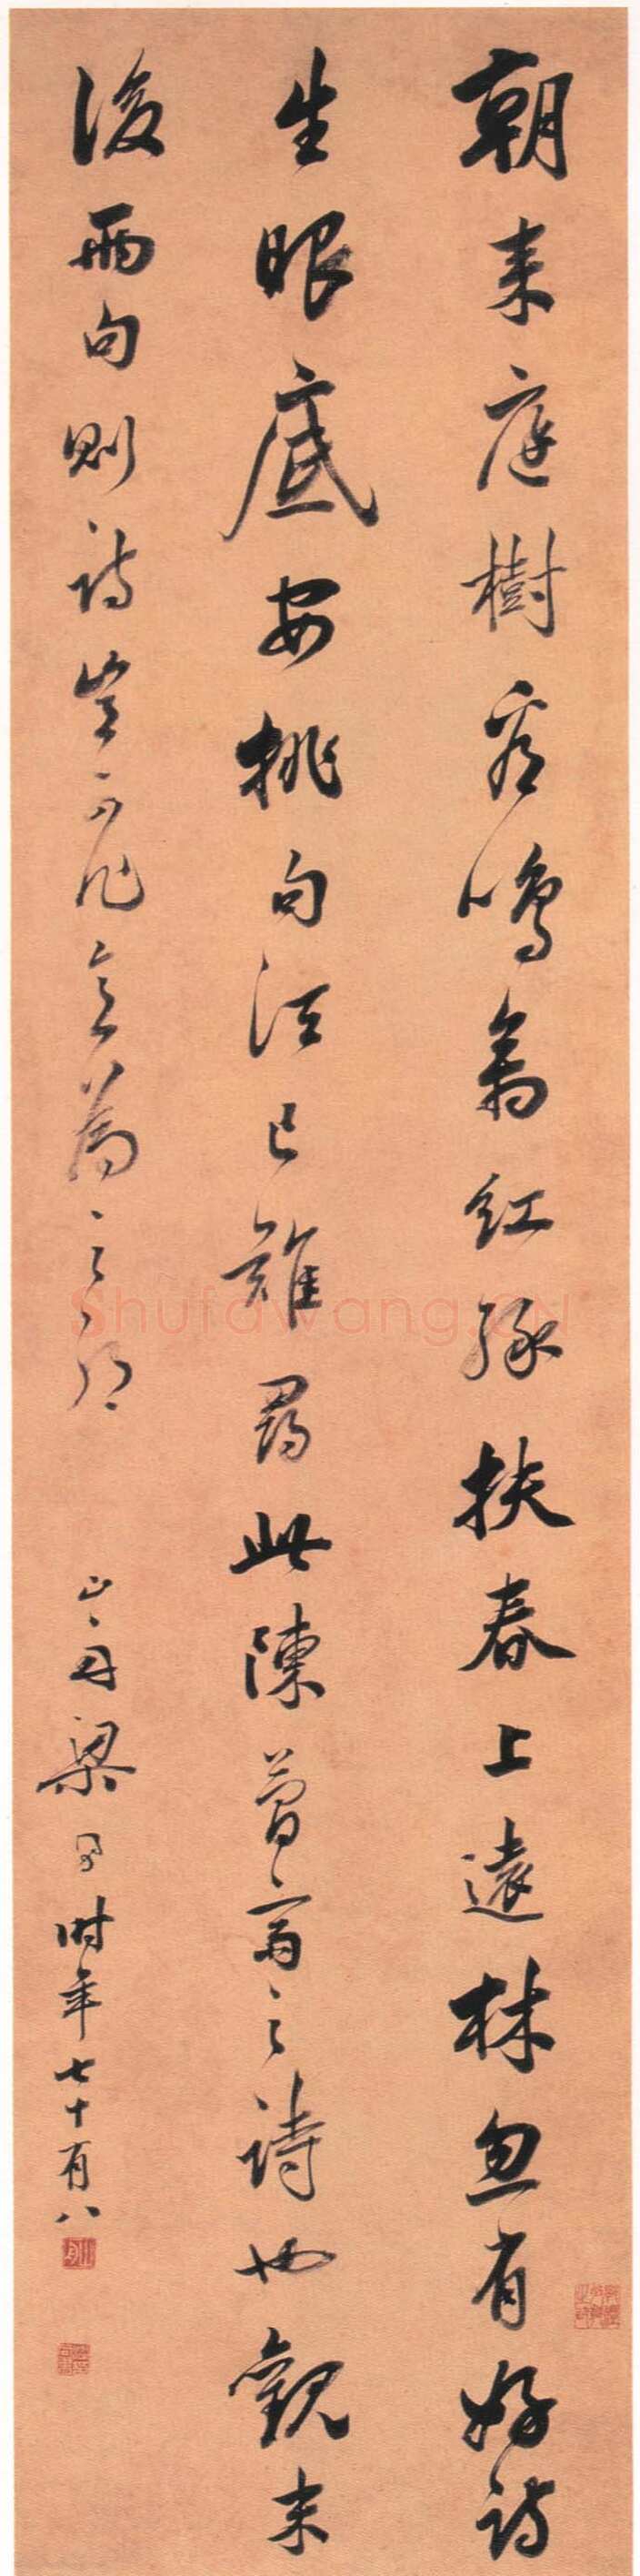 朝来庭樹有鳴禽紅綠扶春上遠林忽有好詩
生眼底安排句法已難尋此陳簡齋之詩也觀末
後兩句則詩豈可作意為之耶
山舟梁同書時年七十有八
Shufawang.CN